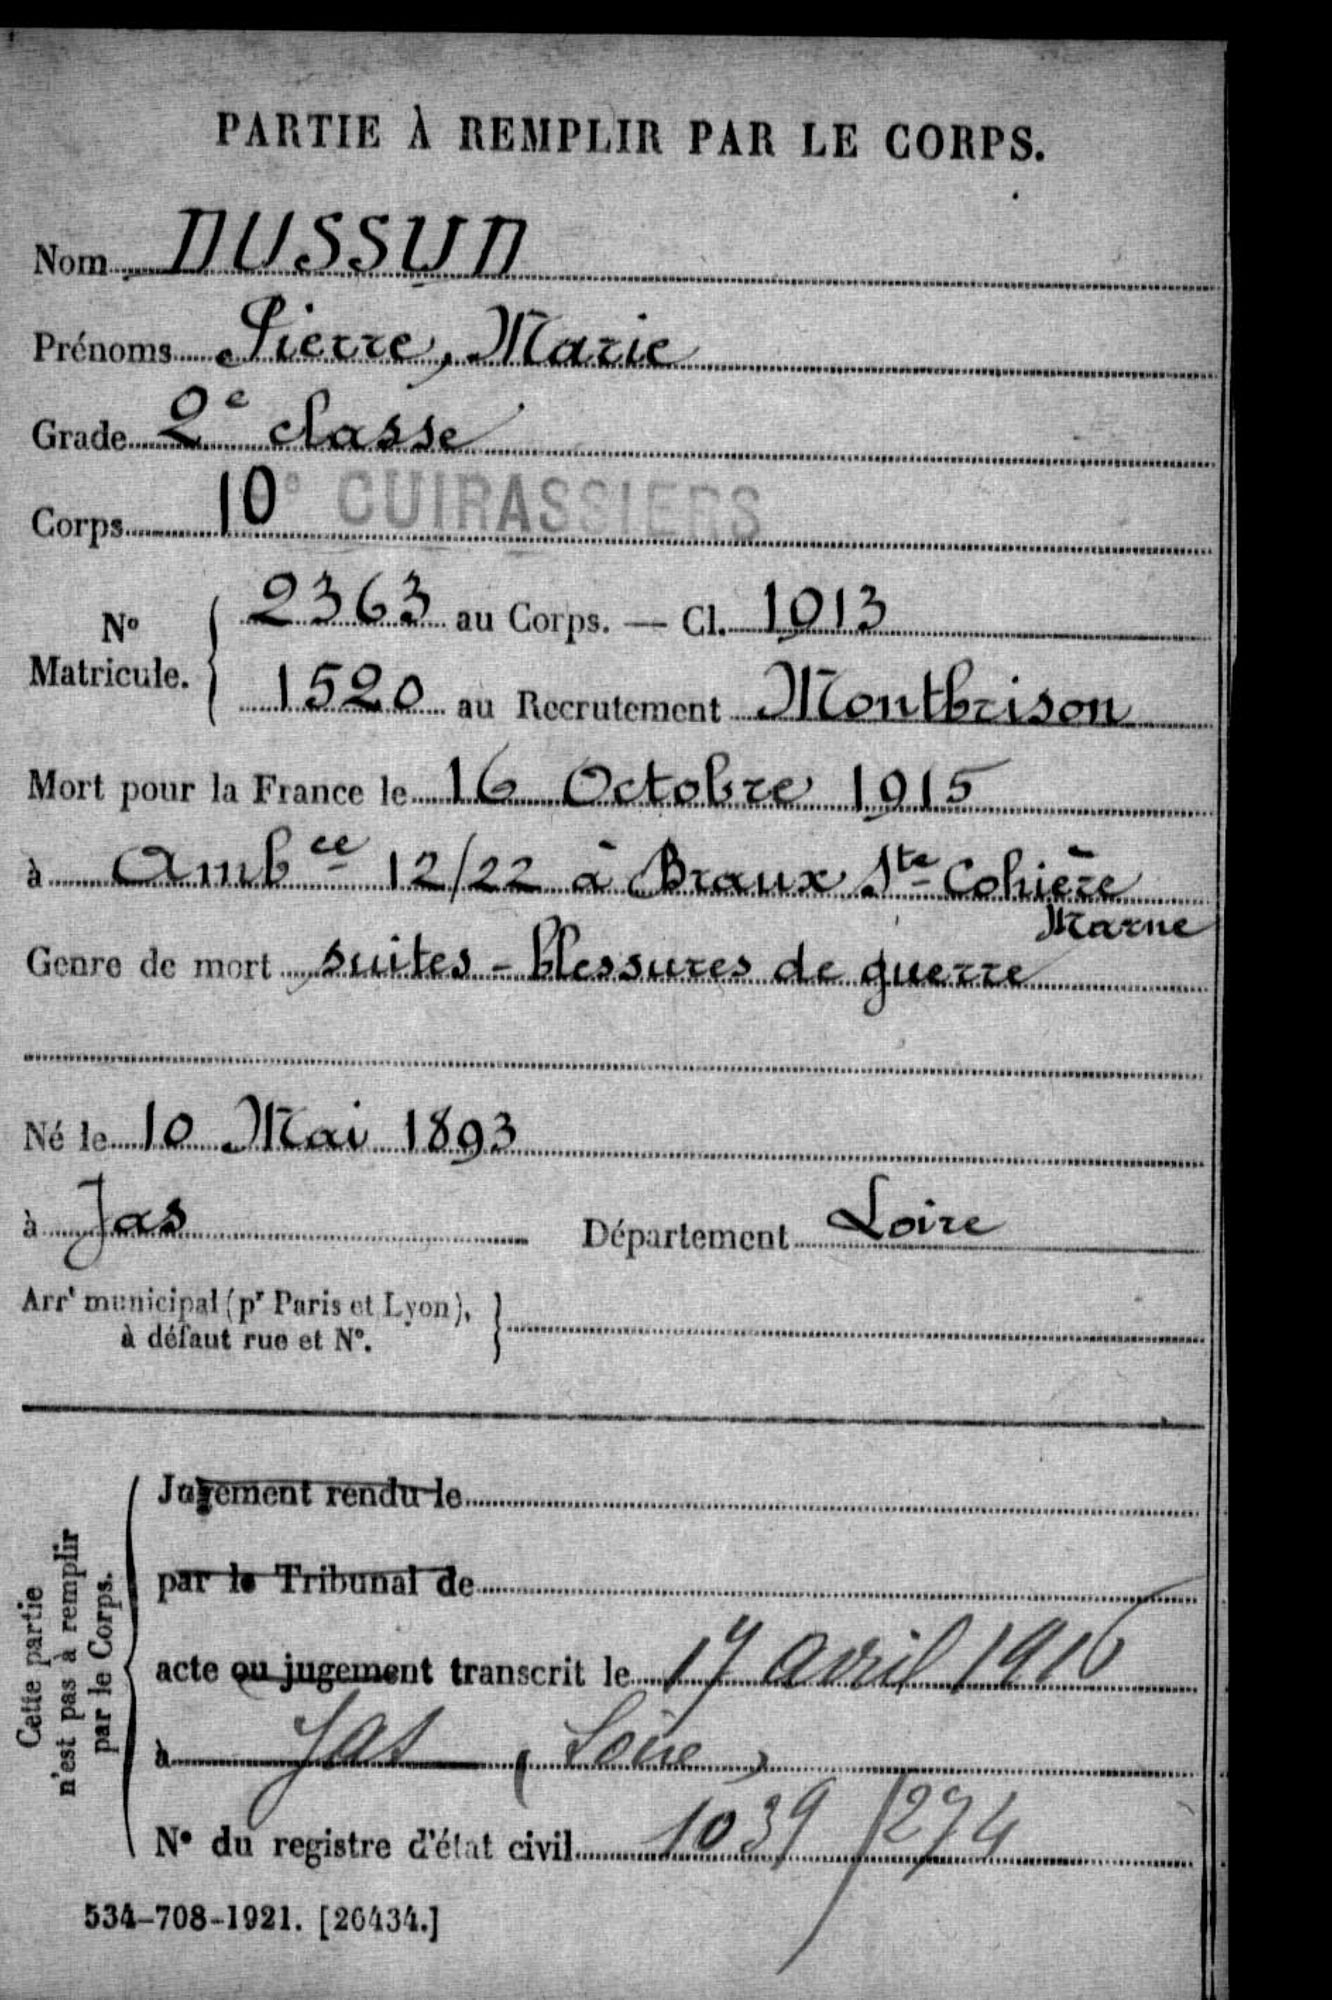 PARTIE À REMPLIR PAR LE CORPS.
Nom DUSSUD
Prénoms Pierre, Marie
Grade 2e classe
Corps 10e CUIRASSIERS
No Matricule. { 2363 au Corps. — Cl. 1913
1520 au Recrutement Montbrison
Mort pour la France le 16 Octobre 1915
à Ambce 12/22 à Braux Ste Cohière
Marne
Genre de mort suites - blessures de guerre
Né le 10 Mai 1893
à Jas Département Loire
Arrt municipal (pr Paris et Lyon),
à défaut rue et No. }
Cette partie
n'est pas à remplir
par le Corps.
Jugement rendu le
par le Tribunal de
acte ou jugement transcrit le 17 avril 1916
à Jas (Loire)
No du registre d'état civil 1039 / 274
534-708-1921. [26434.]